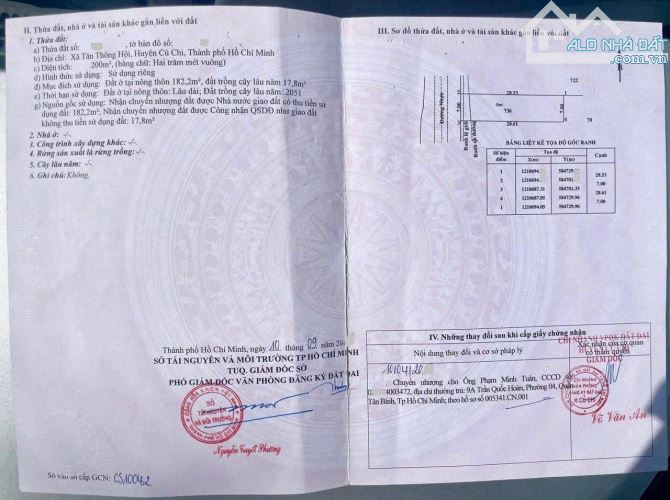 II. Thửa đất, nhà ở và tài sản khác gắn liền với đất
1. Thửa đất:
a) Thửa đất số: , tờ bản đồ số:
b) Địa chỉ: Xã Tân Thông Hội, Huyện Củ Chi, Thành phố Hồ Chí Minh
c) Diện tích: 200m², (bằng chữ: Hai trăm mét vuông)
d) Hình thức sử dụng: Sử dụng riêng
đ) Mục đích sử dụng: Đất ở tại nông thôn 182,2m², đất trồng cây lâu năm 17,8m²
e) Thời hạn sử dụng: Đất ở tại nông thôn: Lâu dài; Đất trồng cây lâu năm: 2051
g) Nguồn gốc sử dụng: Nhận chuyển nhượng đất được Nhà nước giao đất có thu tiền sử
dụng đất: 182,2m²; Nhận chuyển nhượng đất được Công nhận QSDĐ như giao đất
không thu tiền sử dụng đất: 17,8m²
2. Nhà ở: -/-
3. Công trình xây dựng khác: -/-
4. Rừng sản xuất là rừng trồng: -/-
5. Cây lâu năm: -/-
6. Ghi chú: Không.
Thành phố Hồ Chí Minh, ngày 10 tháng 09 năm 20
SỞ TÀI NGUYÊN VÀ MÔI TRƯỜNG TP HỒ CHÍ MINH
TUQ. GIÁM ĐỐC SỞ
PHÓ GIÁM ĐỐC VĂN PHÒNG ĐĂNG KÝ ĐẤT ĐAI
SỞ
TÀI NGUYÊN
VÀ MÔI TRƯỜNG
Nguyễn Tuyết Phương
Số vào sổ cấp GCN: CS10042
III. Sơ đồ thửa đất, nhà ở và tài sản khác gắn liền với đất
ALO NHÀ ĐẤT
722
28.53
Đường Nhựa
Ranh lộ giới
Ranh sử dụng
7.00
736
7.00
28.61
78
BẢNG LIỆT KÊ TỌA ĐỘ GÓC RANH
Số hiệu điểm Tọa độ Cạnh
X(m) Y(m)
1 1210694. 584729.
28.53
2 1210694. 584701.
7.00
3 1210687.31 584701.35
28.61
4 1210687.05 584729.96
7.00
1 1210694.05 584729.96
IV. Những thay đổi sau khi cấp giấy chứng nhận
Nội dung thay đổi và cơ sở pháp lý
Xác nhận của cơ quan có thẩm quyền
GIÁM ĐỐC
Chuyển nhượng cho Ông Phạm Minh Tuấn, CCCD
4003472, địa chỉ thường trú: 9A Trần Quốc Hoàn, Phường 04, Quận
Tân Bình, Tp Hồ Chí Minh; theo hồ sơ số 005341.CN.001
CHI NHÁNH
VĂN PHÒNG
ĐĂNG KÝ ĐẤT ĐAI
H.CỦ CHI
Võ Văn An